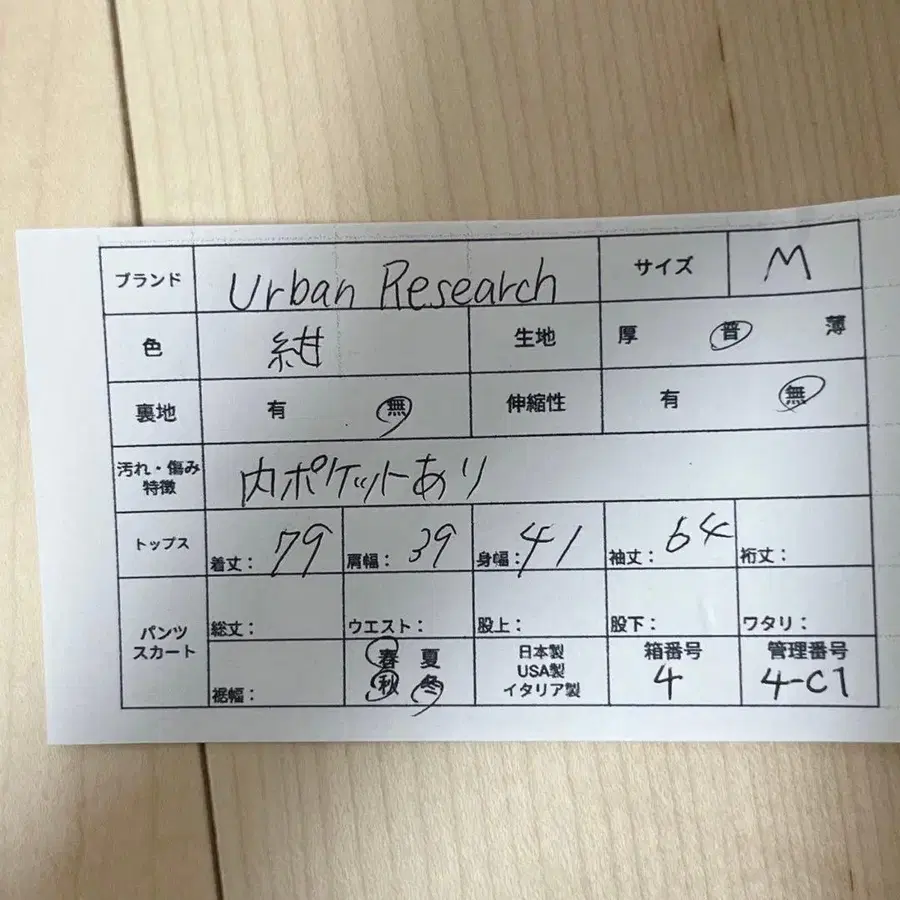 ブランド Urban Research サイズ M
色 紺 生地 厚 普 薄
裏地 有 無 伸縮性 有 無
汚れ・傷み
特徴 内ポケットあり
トップス 着丈: 79 肩幅: 39 身幅: 41 袖丈: 64 裄丈:
パンツ
スカート 総丈: ウエスト: 股上: 股下: ワタリ:
裾幅: 春 夏
秋 冬
日本製
USA製
イタリア製
箱番号
4
管理番号
4-C1